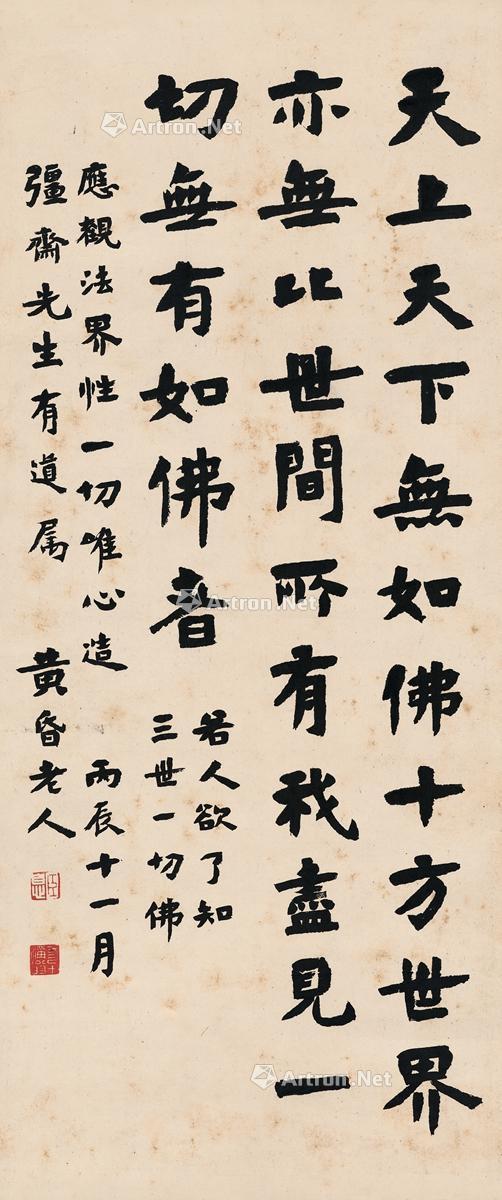 天上天下無如佛十方世界
亦無比世間所有我盡見一
切無有如佛者
若人欲了知
三世一切佛
應觀法界性一切唯心造 丙辰十一月
彊齋先生有道属 黃昏老人
Artron.Net
Artron.Net
Artron.Net
Artron.Net
Artron.Net
Artron.Net